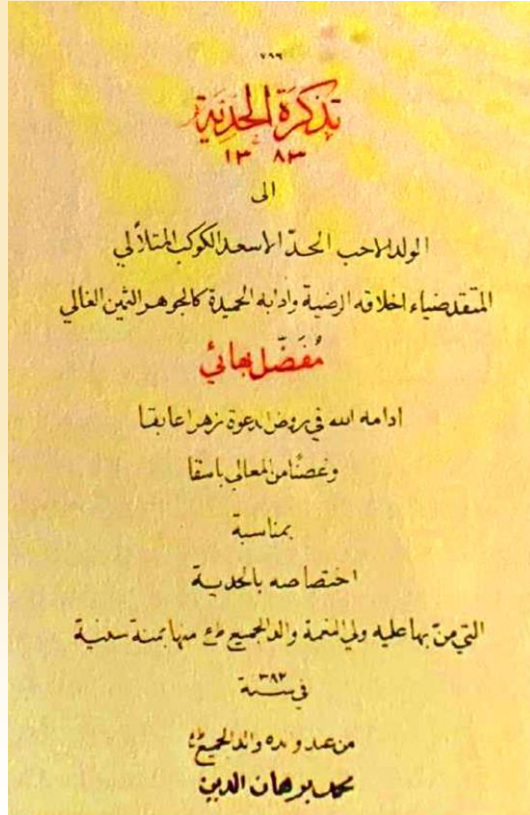 ٧٨٦
تذكرة الحدية
١٣٨٣
الى
الولد الاحب الحدّ الاسعد الكوكب المتلألي
المتقد ضياء اخلاقه الرضية وادابه الحميدة كالجوهر الثمين الغالي
مُفَضّل بھائي
ادامه الله في روض الدعوة زهرا عابقا
وغصنًا من المعالي باسقا
بمناسبة
اختصاصه بالحدية
التي منّ بها عليه ولي النعمة والد الجميع طع منها بمنة سنية
في سنة ٣٨٢
من عبده وولده والد الجميع
محمد برهان الدين